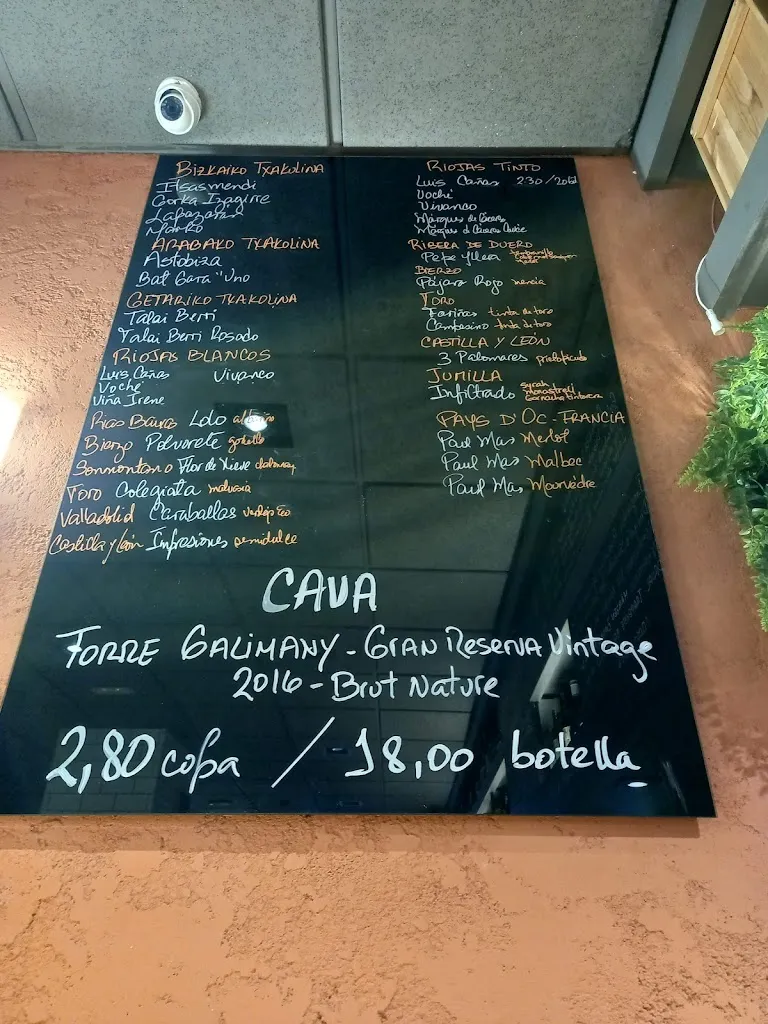 BIZKAIKO TXAKOLINA
Itsasmendi
Gorka Izagirre
ARABAKO TXAKOLINA
Astobiza
Bat Gara "Uno
GETARIKO TXAKOLINA
Talai Berri
Talai Berri Rosado
RIOJAS BLANCOS
Luis Cañas Vivanco
Voché
Viña Irene
Rias Baixas Lolo albariño
Bierzo Polvorete godello
Somontano Flor de Nieve
Toro Colegiatta malvasia
Valladolid Caraballas verdejo Eco
Castilla y León Impresiones semidulce
RIOJAS TINTO
Luis Cañas 2'30/
Voché
Vivanco
Márques de Cáceres
Márques d Cáceres
RIBERA DE DUERO
Pepe Yllera tempranillo
BIERZO
Pájaro Rojo mencia
TORO
Fariñas tinta de toro
Campesino tinta d toro
CASTILLA Y LEÓN
3 Palomares prieto picudo
JUMILLA
Infiltrado syrah
monastrell
Garnacha tintorera
PAYS D'OC - FRANCIA
Paul Mas Merlot
Paul Mas Malbec
Paul Mas Mourvédre
CAVA
TORRE GALIMANY - GRAN RESERVA Vintage
2016 - Brut Nature
2,80 copa / 18,00 botella